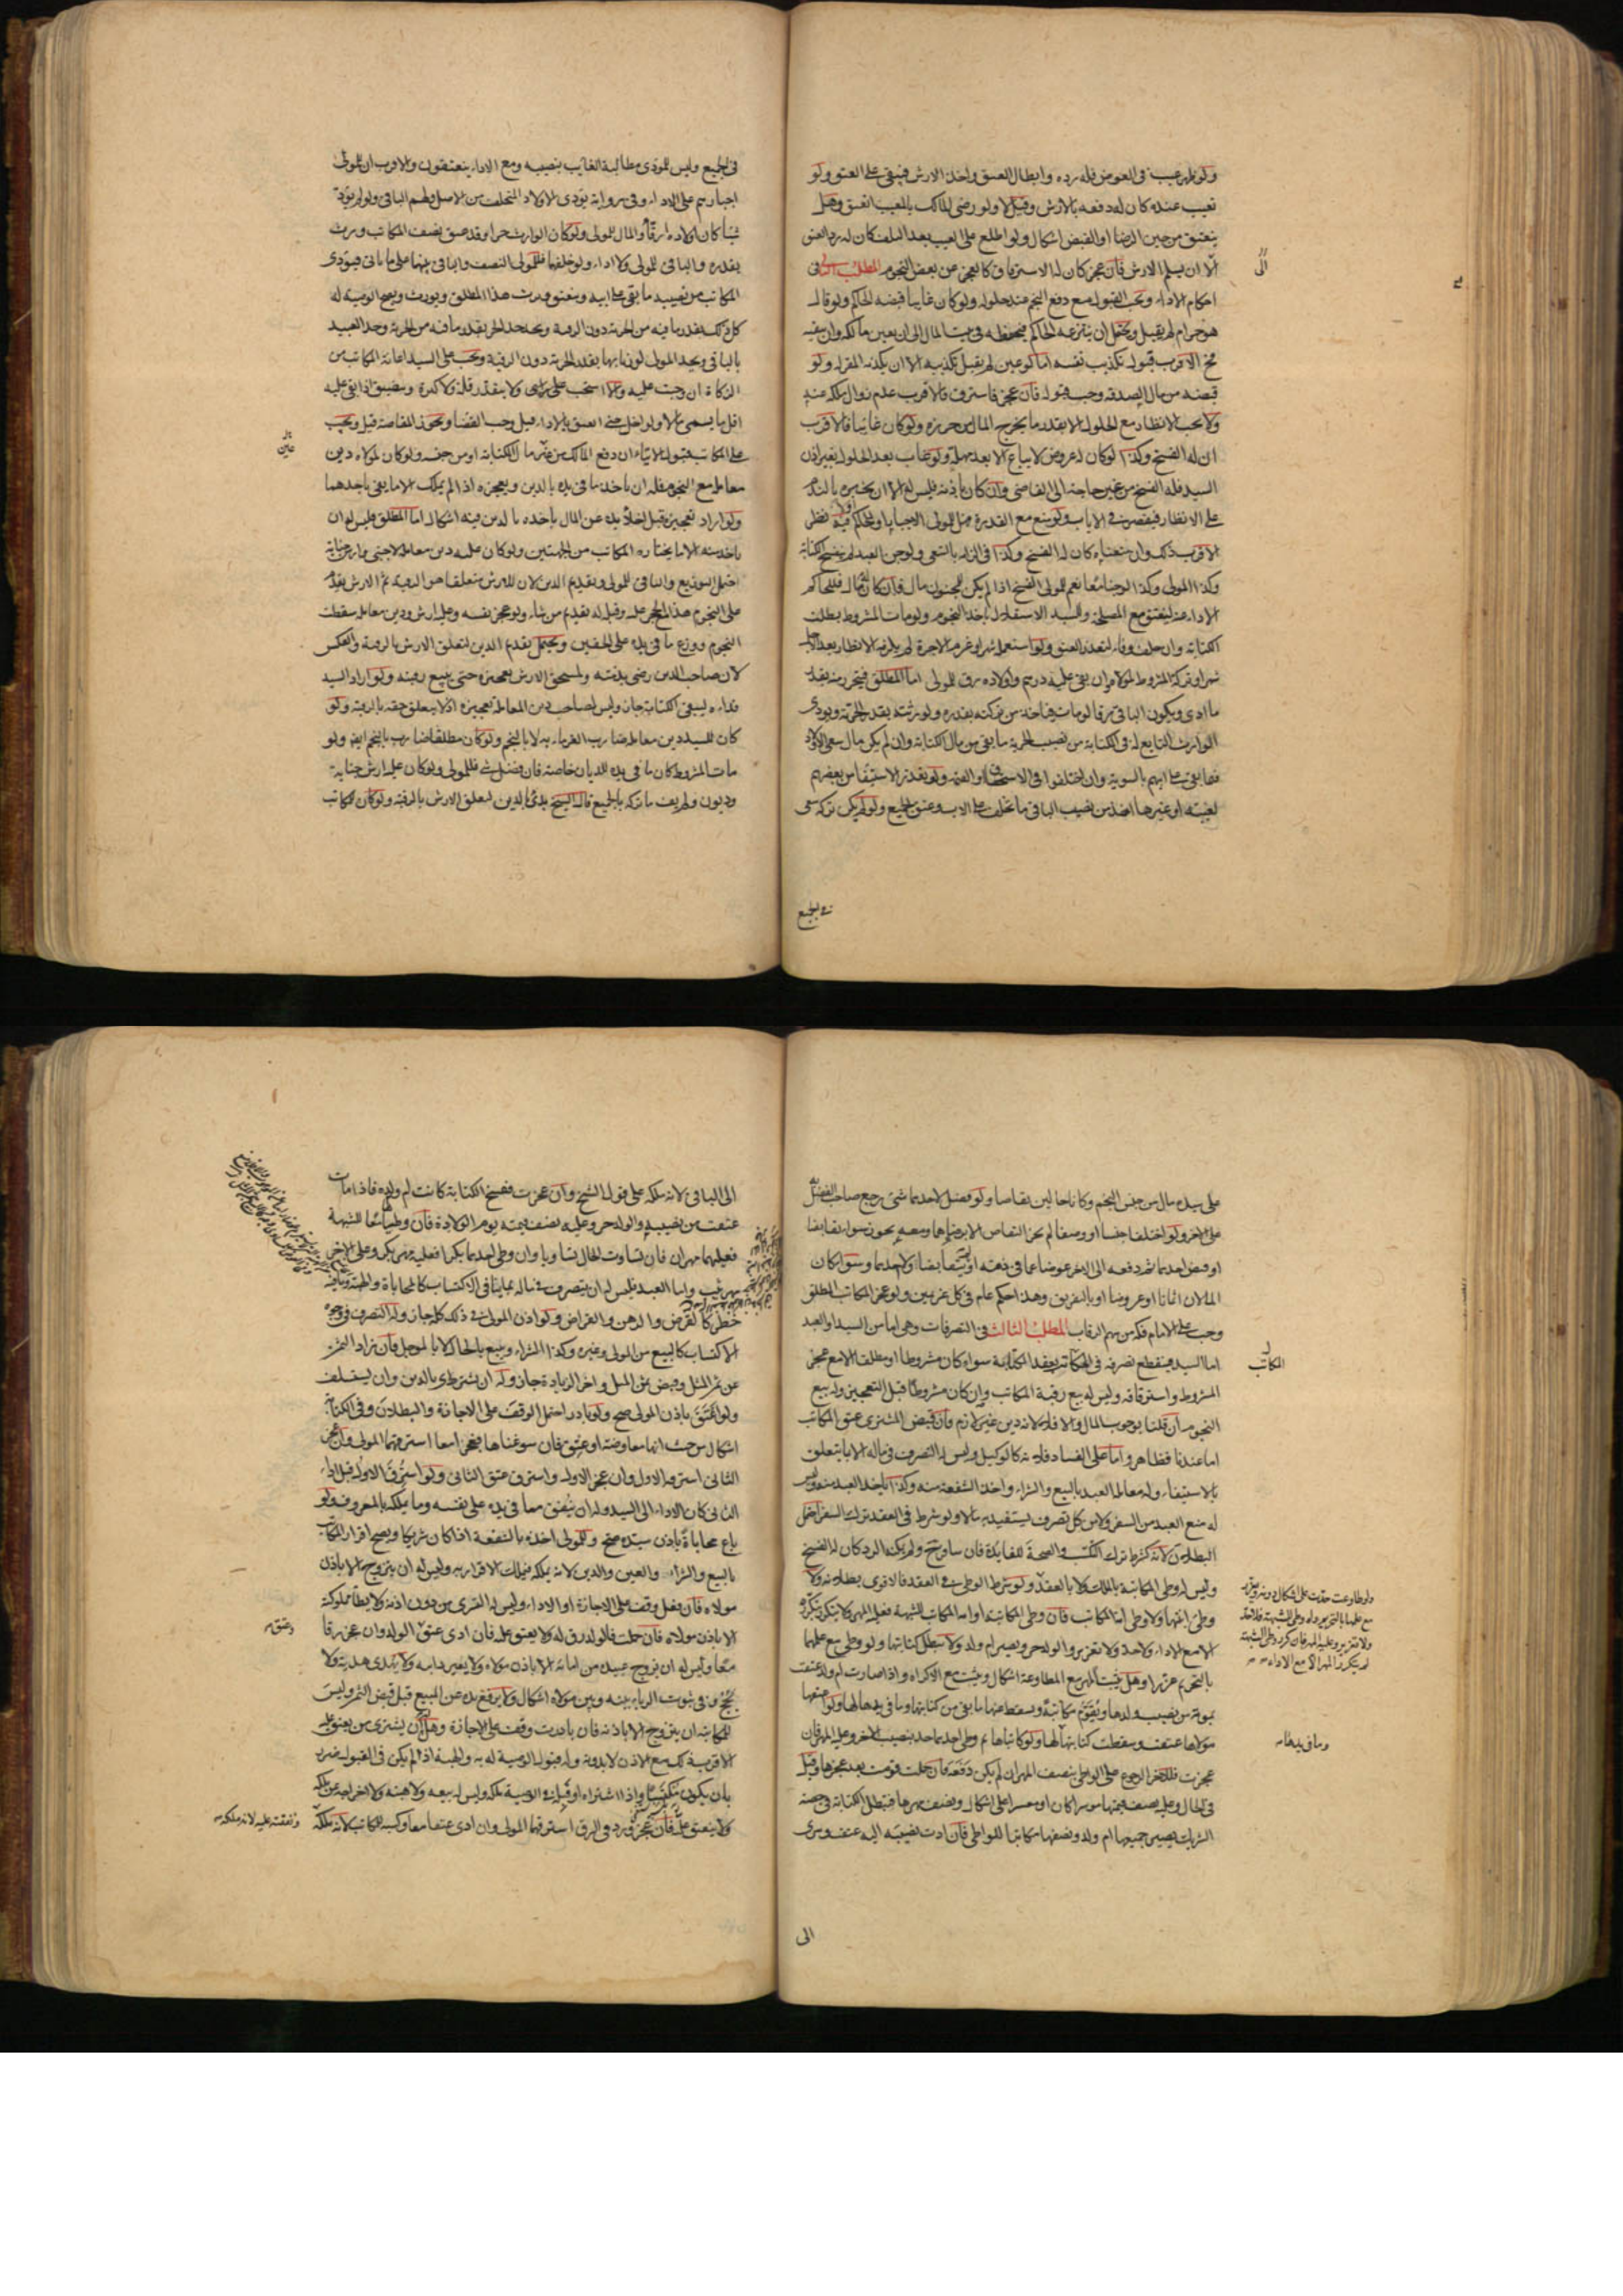 ولو ظهر عيب في العوض فله رده وابطال العتق واخذ الارش فيبقى على العتق ولو
تعيب عنده كان له دفعه بالارش وقيل لا ولو رضى المالك بالمعيب انعتق وهل
ينعتق من حين الرضا او القبض اشكال ولو اطلع على العيب بعد التلف كان له رد العتق
الا ان يسلم الارش فان عجز كان له الاسترقاق كالعجز عن بعض النجوم المطلب الثاني في
احكام الاداء ويجب القبول مع دفع النجم عند حلوله ولو كان غايبا قبضه الحاكم ولو قال
هو حرام لم يقبل ويحتمل ان ينتزعه الحاكم فيحفظه في بيت المال الى ان يعين مالكه وان
الاقرب قبول تكذيب نفسه اما لو عين لم يقبل تكذيبه الا ان يكذبه المقر له ولو
قبضه من مال الصدقة وجب قبوله فان عجز فاسترق فالاقرب عدم زوال ملكه عنه
ولا يجب الانظار مع الحلول الا بقدر ما يخرج المال من حرزه ولو كان غائبا فالاقرب
ان له الفسخ وكذا لو كان له عروض لا يباع الا بعد مهلة ولو غاب بعد الحلول بغير اذن
السيد فله الفسخ من غير حاجة الى القاضي وان كان باذنه فليس له الا ان يخبره بالندم
على الانظار فيقصر في الاياب ولو منع مع القدرة فهل للمولى الاجبار او للحاكم فيه نظر
الاقرب ذلك وان منعناه كان له الفسخ وكذا في الزامه بالسعي ولو جن العبد لم ينفسخ الكتابة
وكذا المولى وكذا لو جنا معا نعم للمولى الفسخ اذا لم يكن للمجنون مال فان كان له مال فللحاكم
الاداء عنه ليعتق مع المصلحة وللسيد الاستقلال باخذ النجوم ولو مات المشروط بطلت
الكتابة وان خلف وفاء لتعذر العتق ولو استعمله شهرا وغرم الاجرة لم يلزمه الانظار بعد الاجل
شهرا وتركة المشروط لمولاه ان بقى عليه درهم واولاده رق للمولى اما المطلق فيتحرر منه بقدر
ما ادى ويكون الباقي رقا لو مات فياخذ من تركته بقدره ولورثته بقدر الحرية ويودى
الوارث التابع له في الكتابة من نصيب الحرية ما بقى من مال الكتابة وان لم يكن مال سعى الاولاد
فيما بقى على ابيهم بالسوية وان اختلفوا في الاستحقاق او القيمة ولو تعذر الاستيفاء من بعضهم
لغيبته او غيرها اخذ من نصيب الباقي ما تخلف على الاب وعتق الجميع ولو لم يكن تركة سعى
في الجميع
في الجميع وليس للمودى مطالبة الغايب بنصيبه ومع الاداء ينعتقون والاقرب ان للمولى
اجبارهم على الاداء وفي رواية يودى الاولاد المتخلف من الاصل ولهم الباقي ولو لم يودّ
شيئا كان اولاده ارقاء والمال للمولى ولو كان الوارث حرا وقد عتق نصف المكاتب ورث
بقدره والباقي للمولى ولا اداء ولو خلفهما فللمولى النصف والباقي بينهما على ما ياتي فيودى
المكاتب من نصيبه ما بقى على ابيه وينعتق ويرث هذا المطلق ويورث ويصح الوصية له
كل ذلك بقدر ما فيه من الحرية دون الرقية ويحد حد الحر بقدر ما فيه من الحرية وحد العبد
بالباقي ويحد المولى لو زنا بها بقدر الحرية دون الرقية ويجب على السيد اعانة المكاتب من
الزكاة ان وجبت عليه والا استحب على راى ولا يتقدر قلة ولا كثرة ويتضيق اذا بقى عليه
اقل ما يسمى مالا ولو اخل حتى انعتق بالاداء قيل وجب القضا ويجوز المقاصة قيل ويجب
على المكاتب قبول الايتاء ان دفع المالك من غير مال الكتابة او من جنسه ولو كان لمولاه دين
معاملة مع النجوم فله ان ياخذ ما في يده بالدين ويعجزه اذا لم يملك الا ما يفي باحدهما
ولو اراد تعجيزه قبل اخلاء يده عن المال ياخذه بالدين ففيه اشكال اما المطلق فليس له ان
ياخذ منه الا ما يختاره المكاتب من الجهتين ولو كان عليه دين معاملة لاجنبي وارش جناية
احتمل التوزيع والباقي للمولى وتقديم الدين لان للارش متعلقا هو الرقبة ثم الارش يقدم
على النجوم هذا ان حجر عليه وقبله له تقديم من شاء ولو عجز نفسه وعليه ارش ودين معاملة سقطت
النجوم ووزع ما في يده على الحقين ويحتمل تقديم الدين لتعلق الارش بالرقبة والعكس
لان صاحب الدين رضى بذمته ولمستحق الارش تعجيزه حتى يبيع رقبته ولو اراد السيد
فداءه ليبقى الكتابة جاز وليس لصاحب دين المعاملة تعجيزه اذ لا يتعلق حقه بالرقبة ولو
كان للسيد دين معاملة ضارب الغرماء به لا بالنجم ولو كان مطلقا ضارب بالنجم ايضا ولو
مات المشروط كان ما في يده للديان خاصة فان فضل شي فللمولى ولو كان عليه ارش جناية
وديون ولم يف ما تركه بالجميع قال الشيخ بدئ بالدين لتعلق الارش بالرقبة ولو كان للمكاتب
على سيده مال من جنس النجم وكانا حالين تقاصا ولو فضل لاحدهما شئ رجع صاحب الفضل
على الاخر ولو اختلفا جنسا او وصفا لم يجز التقاص الا برضاهما ومعه يجوز سواء تقابضا
او قبض احدهما ثم دفعه الى الاخر عوضا عما في ذمته او لم يتقابضا ولا احدهما وسواء كان
المالان اثمانا او عروضا او بالتفريق وهذا حكم عام في كل غريمين ولو عجز المكاتب المطلق
وجب على الامام فكه من سهم الرقاب المطلب الثالث في التصرفات وهي اما من السيد او العبد
اما السيد فينقطع تصرفه في المكاتب بعقد الكتابة سواء كان مشروطا او مطلقا الا مع عجز
المشروط واسترقاقه وليس له بيع رقبة المكاتب وان كان مشروطا قبل التعجيز وله بيع
النجوم ان قلنا بوجوب المال والا فلا لانه دين غير لازم فان قبض المشترى عتق المكاتب
اما عندنا فظاهر واما على الفساد فلانه كالوكيل وليس له التصرف في ماله الا بما يتعلق
بالاستيفاء وله معاملة العبد بالبيع والشراء واخذ الشفعة منه وكذا ياخذ العبد منه وليس
له منع العبد من السفر ولا من كل تصرف يستفيد به مالا ولو شرط في العقد ترك السفر احتمل
البطلان لانه كشرط ترك التكسب والصحة للفايدة فان سافر ح ولم يمكنه الرد كان له الفسخ
وليس له وطى المكاتبة بالملك ولا بالعقد ولو شرط الوطى في العقد فالاقوى بطلانه ولا
وطى ابنتها ولا وطى امة المكاتب فان وطى المكاتبة او امة المكاتب للشبهة فعليه المهر ولا يتكرر بتكرره
الا مع الاداء ولا حد ولا تعزير والولد حر وتصير ام ولد ولا تبطل كتابتها ولو وطى مع علمهما
بالتحريم عزرا وهل يثبت المهر مع المطاوعة اشكال ويثبت مع الاكراه واذا صارت ام ولد عتقت
بموته من نصيب ولدها ويقوم مكاتبة ويسقط عنها ما بقى من كتابتها وما في يدها لها ولو اعتقها
مولاها عتقت وسقطت كتابتها ولو كاتباها ثم وطى احدهما حد بنصيب الاخر وعليه المهر فان
عجزت فللاخر الرجوع على الواطى بنصف المهر ان لم يكن دفعه فان حملت قومت بعد عجزها وقيل
في الحال وعليه نصف قيمتها موسرا كان او معسرا على اشكال ونصف مهرها فتبطل الكتابة في حصة
الشريك يصير جميعها ام ولد ونصفها مكاتبا للواطى فان ادت نصيبه اليه عتقت وسرى
الى
الى الباقي لانه ملكه على قول الشيخ وان عجزت ففسخ الكتابة كانت ام ولد فاذا مات
عتقت من نصيب الولد حر وعليه نصف قيمته يوم الولادة فان وطئاها معا للشبهة
فعليهما مهران فان تساوت الحال تساويا وان وطى احدهما بكرا فعليه مهر بكر وعلى الاخر
مهر ثيب واما العبد فليس له ان يتصرف في ماله بما ينافي الاكتساب كالمحاباة والهبة وما فيه
خطر كالقرض والرهن والقراض ولو اذن المولى في ذلك كله جاز وله التصرف في وجوه
الاكتساب كالبيع من المولى وغيره وكذا الشراء ويبيع بالحال لا بالموجل فان زاد الثمن
عن ثمن المثل وقبض ثمن المثل واخر الزيادة جاز وله ان يشترى بالدين وان يستسلف
ولو اعتق باذن المولى صح ولو بادر احتمل الوقف على الاجازة والبطلان وفي الكتابة
اشكال من حيث انها معاوضة او عتق فان سوغناها فعجزا معا استرقهما المولى وان عجز
الثاني استرقه الاول وان عجز الاول واسترق عتق الثاني ولو استرق الاول قبل اداء
الثاني كان الاداء الى السيد وله ان ينفق مما في يده على نفسه وما يملكه بالمعروف ولو
باع محاباة باذن سيده صح وللمولى اخذه بالشفعة اذا كان شريكا ويصح اقرار المكاتب
بالبيع والشراء والعين والدين لانه يملكه فيملك الاقرار به وليس له ان يتزوج الا باذن
مولاه فان فعل وقف على الاجازة او الاداء وليس له التسرى من دون اذنه ولا يطأ مملوكته
الا باذن مولاه فان حملت فالولد رق له لا يعتق عليه فان ادى عتق الولد وان عجز رقا
معا وليس له ان يزوج عبيده من امائه الا باذن مولاه ولا يعير دابة ولا يهدى هدية ولا
يحج وفي ثبوت الربا بينه وبين مولاه اشكال ولا يرفع يده عن المبيع قبل قبض الثمن وليس
للمكاتبة ان يتزوج الا باذنه فان بادرت وقف على الاجازة وهل له ان يشترى من يعتق عليه
الاقرب ذلك مع الاذن لا بدونه وله قبول الوصية له به والهبة اذا لم يكن في القبول ضرر
بان يكون مكتسبا واذا اشتراه او قبله في الوصية ملكه وليس له بيعه ولا هبته ولا اخراجه عن ملكه
ولا ينعتق عليه فان عجز ورد في الرق استرقهما المولى وان ادى عتقا معا وكسبه للمكاتب لانه ملكه
المكاتب
وما في يدها
وعتق
ونفقته عليه لانه مملوكه